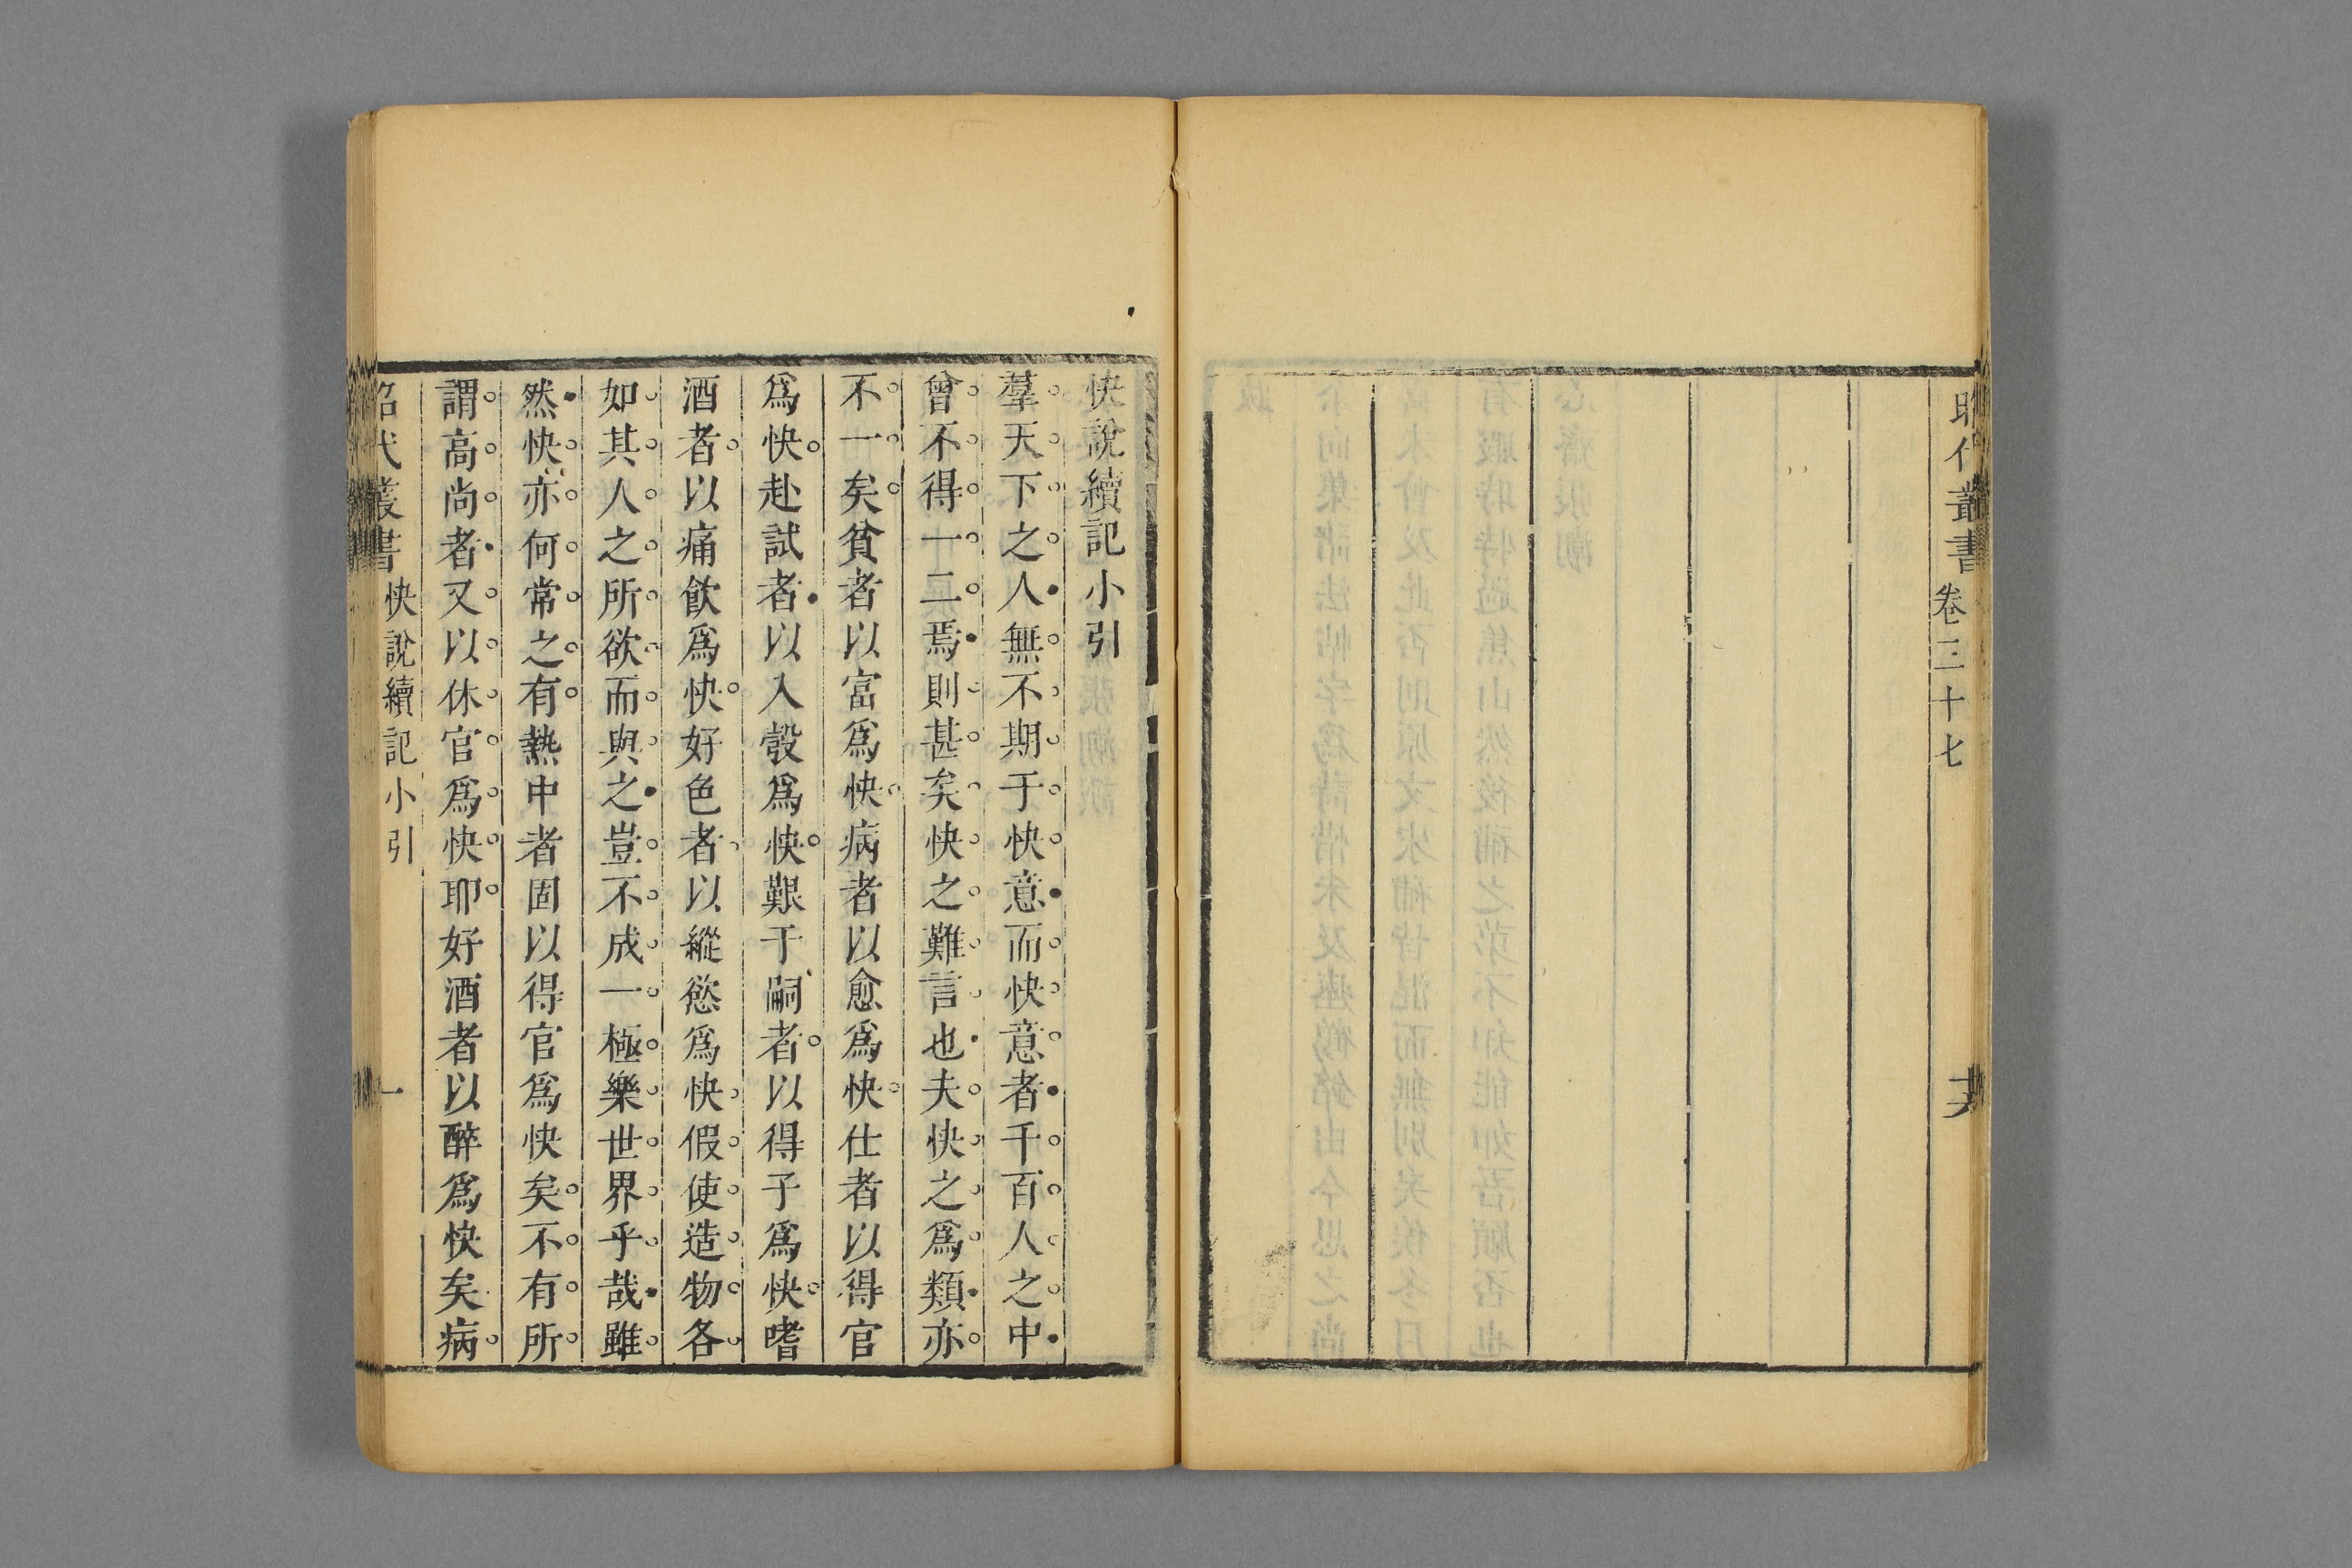 昭代叢書 卷三十七 十六
快說續記小引
羣天下之人無不期于快意而快意者千百人之中
曾不得一二焉則甚矣快之難言也夫快之爲類亦
不一矣貧者以富爲快病者以愈爲快仕者以得官
爲快赴試者以入彀爲快艱于嗣者以得子爲快嗜
酒者以痛飲爲快好色者以縱慾爲快假使造物各
如其人之所欲而與之豈不成一極樂世界乎哉雖
然快亦何常之有熱中者固以得官爲快矣不有所
謂高尚者又以休官爲快耶好酒者以醉爲快矣病
昭代叢書 快說續記小引 一